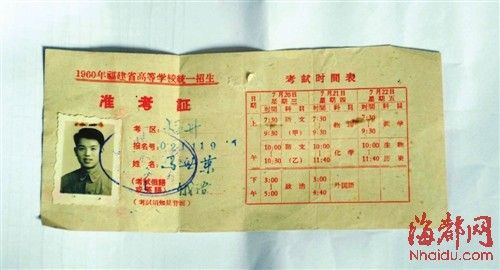 1960年福建省高等学校统一招生
准考证
考区
报名号 021119
姓名 马
(考試俄語或英語)
(考試須知見背面)
考試时間表
日期 7月20日星期三 7月21日星期四 7月22日星期五
时間 科目 时間 科目 时間 科目
上午 7:30 9:30 語文(甲) 7:30 9:30 物理 7:30 9:30 数学
10:00 10:30 語文(乙) 10:00 11:40 化学 10:00 11:40 生物 历史
下午 3:00 5:00 政治 3:00 4:40 外国語
海都网
Nhaidu.com